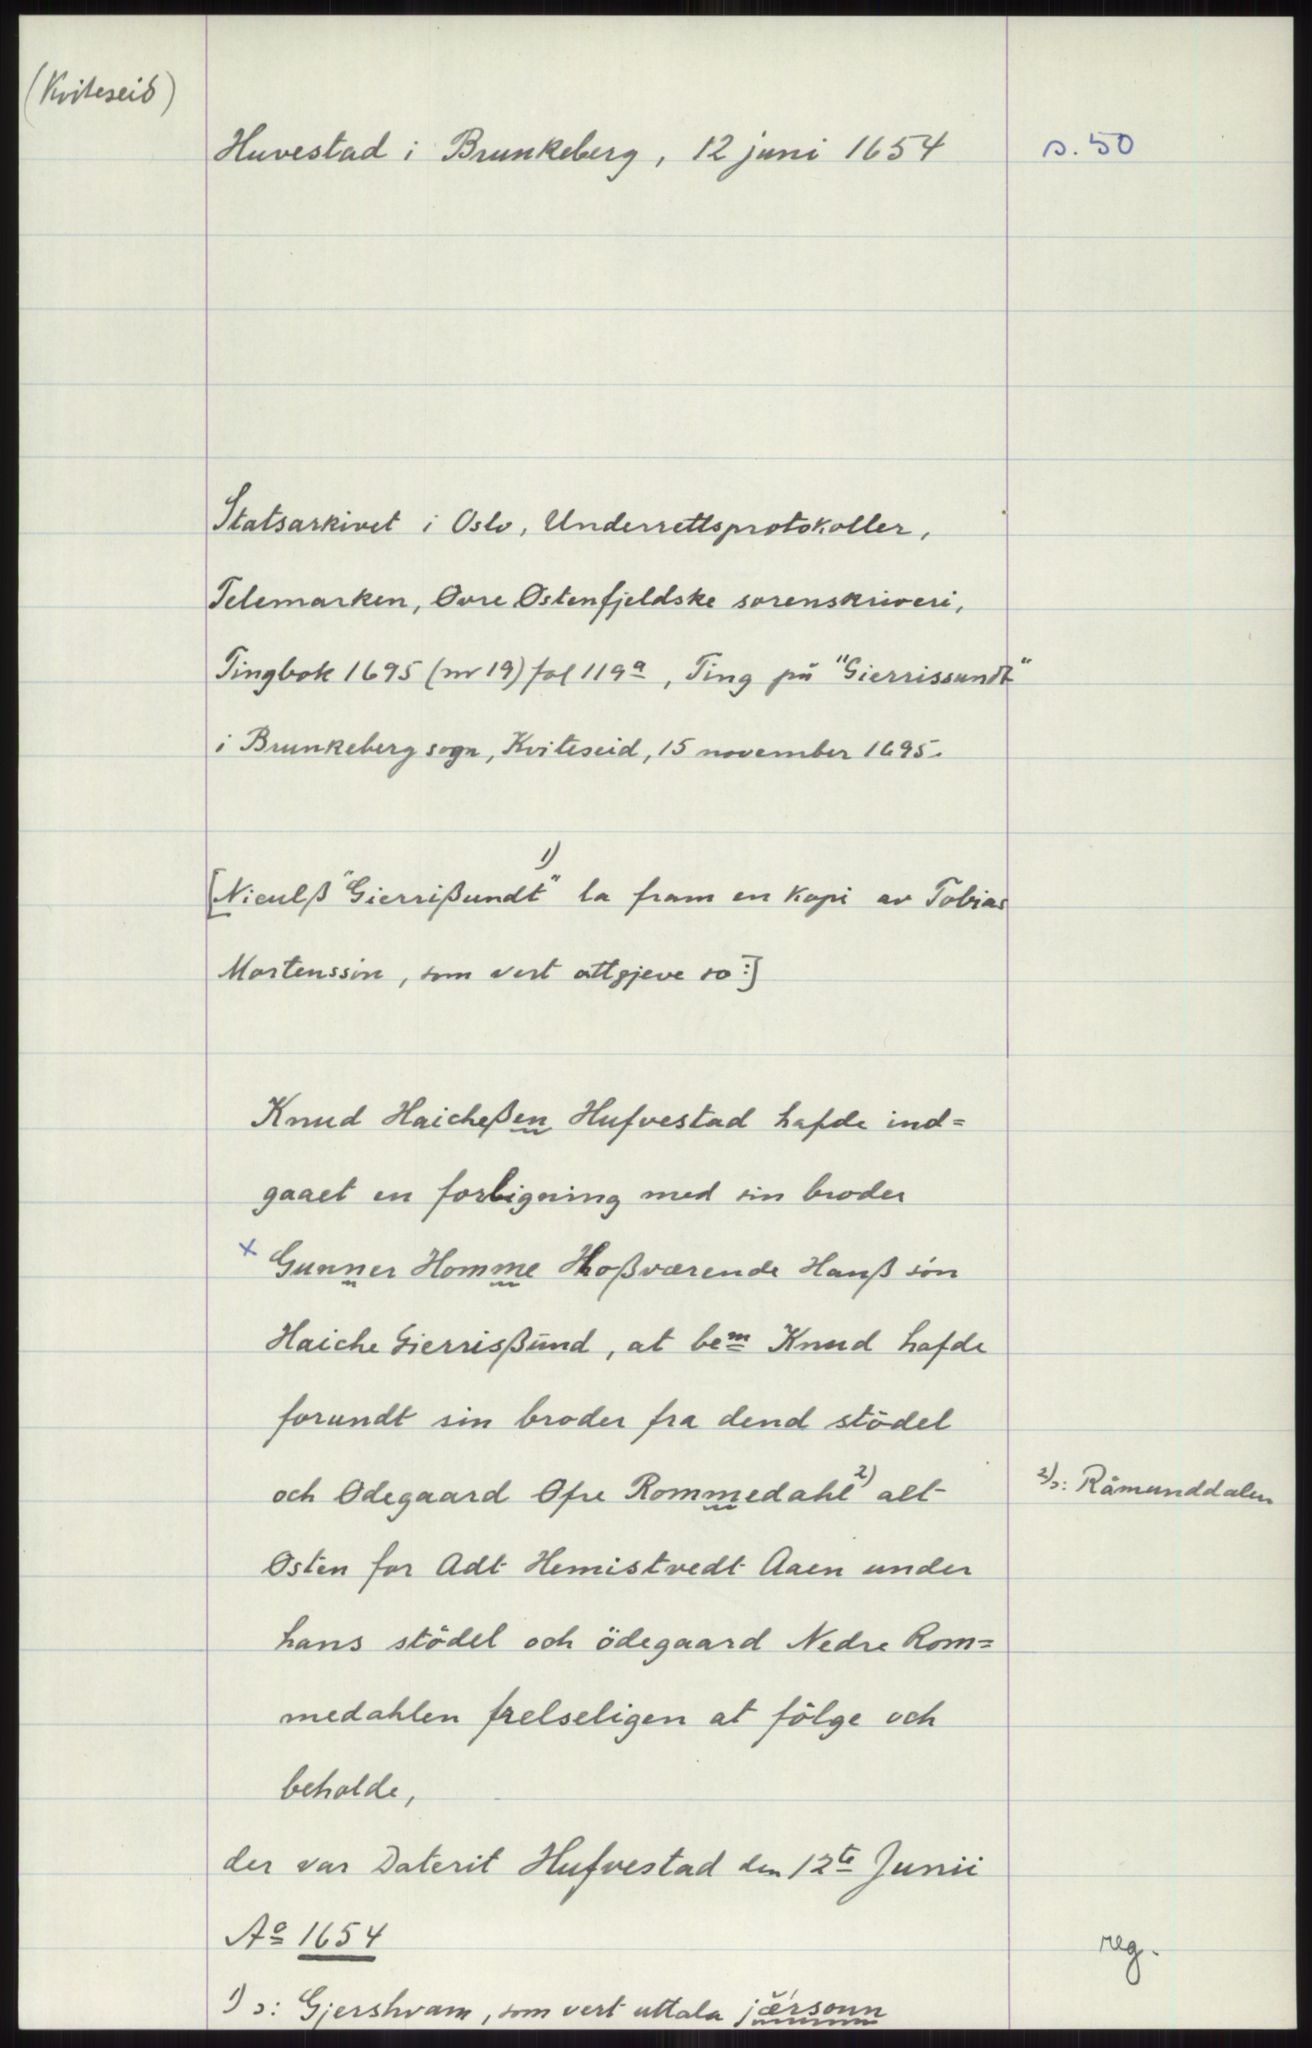 (Kviteseid)
Huvestad i Brunkeberg, 12 juni 1654
s. 50
Statsarkivet i Oslo, Underrettsprotokoller,
Telemarken, Øvre Østenfjeldske sorenskriveri,
Tingbok 1695 (nr 19) fol 119a, Ting på "Gierrissundt"
i Brunkeberg sogn, Kviteseid, 15 november 1695.
[Niculß "Gierrißundt" 1) la fram en kopi av Tobias
Mortenssøn, som vert attgjeve so:]
Knud Haicheßen Hufvestad hafde ind=
gaaet en forligning med sin broder
x Gunner Homme Hoßværende Hanß søn
Haiche Gierrisßund, at bem Knud hafde
forundt sin broder fra dend stödel
och Ödegaard Öfre Rommedahl 2) alt
Østen for Adt Hemistvedt Aaen under
hans stödel och ödegaard Nedre Rom=
medahlen frelseligen at fölge och
beholde,
2) ɔ: Råmunddalen
der var Daterit Hufvestad den 12te Junii
Ao 1654
reg.
1) ɔ: Gjershvam, som vert uttala jærsonn